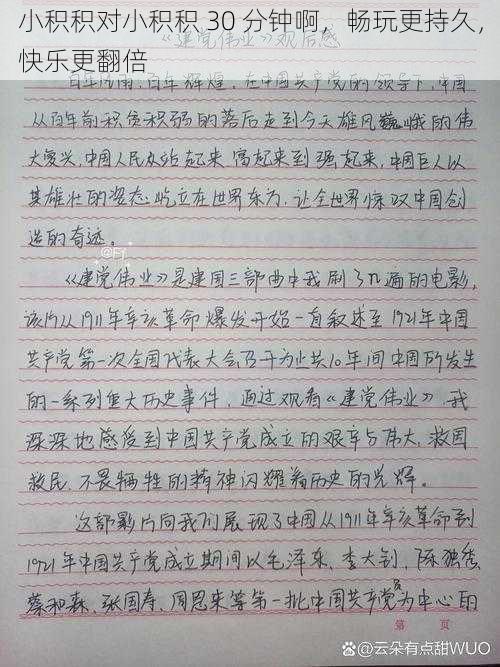 小积积对小积积 30 分钟啊，畅玩更持久，
快乐更翻倍
《建党伟业》观后感
百年风雨，百年辉煌，在中国共产党的领导下，中国
从百年前积贫积弱的落后走到今天雄风巍峨的伟
大复兴，中国人民从站起来，富起来到强起来，中国巨人以
其雄壮的姿态屹立在世界东方，让全世界惊叹中国创
造的奇迹。
《建党伟业》是建国三部曲中我刷了n遍的电影，
该片从1911年辛亥革命爆发开始一直叙述至1921年中国
共产党第一次全国代表大会召开为止共10年间中国所发生
的一系列重大历史事件，通过观看《建党伟业》，我
深深地感受到中国共产党成立的艰辛与伟大，救国
救民、不畏牺牲的精神闪耀着历史的光辉。
这部影片向我们展现了中国从1911年辛亥革命到
1921年中国共产党成立期间以毛泽东、李大钊、陈独秀、
蔡和森、张国焘、周恩来等第一批中国共产党为中心的
第 页
知乎 @云朵有点甜WUO